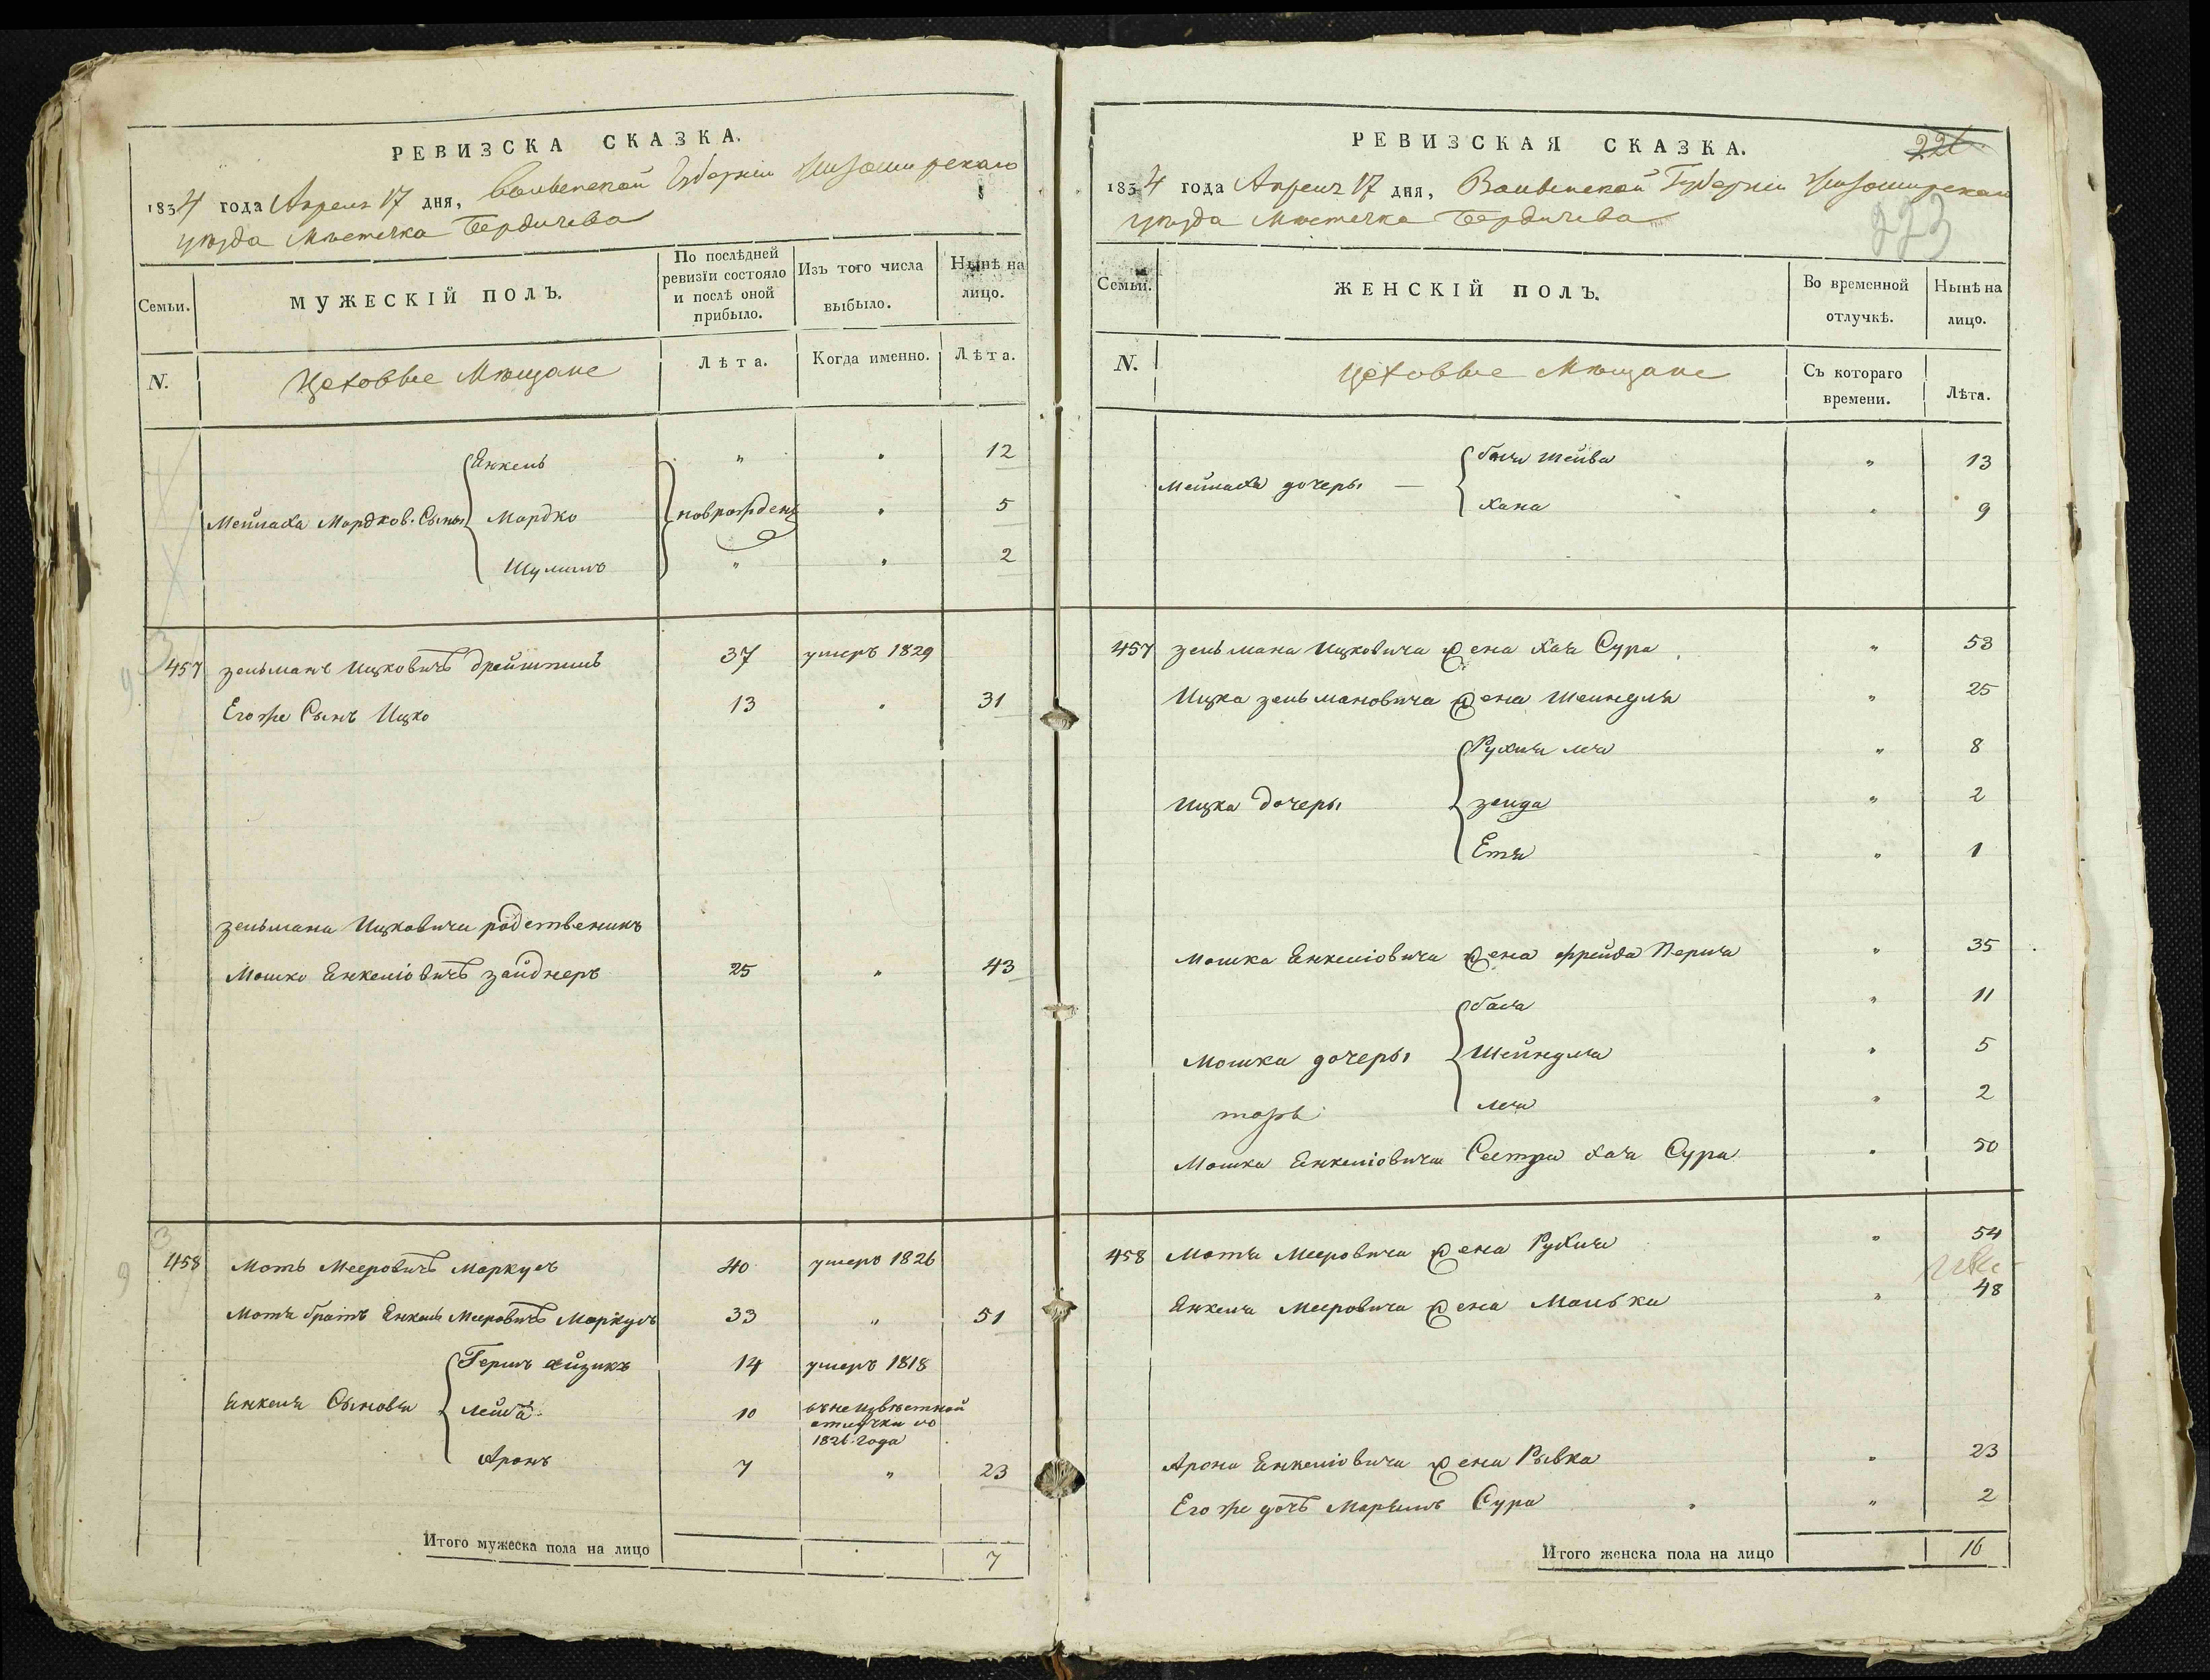 РЕВИЗСКА СКАЗКА.
1834 года Апреля 17 дня, Волынской Губернии Житомирскаго
уѣзда Мѣстечка Бердичева
Семьи.
МУЖЕСКІЙ ПОЛЪ.
По послѣдней ревизіи состояло и послѣ оной прибыло.
Изъ того числа выбыло.
Нынѣ на лицо.
N.
Цеховые Мѣщане
Лѣта.
Когда именно.
Лѣта.
Енкель " " 12
Мейлаха Мордков. Сыны Мордко новрожден " 5
Шулимъ " " 2
457 Зельманъ Ицковичъ 37 умеръ 1829
Его же Сынъ Ицко 13 " 31
Зельмана Ицковича родственикъ
Мошко Енкеліовичъ Зайднеръ 25 " 43
458 Моть Мееровичъ Маркусъ 40 умеръ 1826
Мотя братъ Енкель Мееровичъ Маркусъ 33 " 51
Гершъ Айзикъ 14 умеръ 1818
Енкеля Сыновья Лейба 10 въ неизвѣстной
отлучки съ
1826 года
Аронъ 7 " 23
Итого мужеска пола на лицо 7
РЕВИЗСКАЯ СКАЗКА.
223
1834 года Апреля 17 дня, Волынской Губерніи Житомирскаго
уѣзда Мѣстечка Бердичева
Семьи.
ЖЕНСКІЙ ПОЛЪ.
Во временной отлучкѣ.
Нынѣ на лицо.
N.
Цеховые Мѣщане
Съ котораго времени.
Лѣта.
Бася Шейва " 13
Мейлаха дочеры —
Хана " 9
457 Зельмана Ицковича жена Хая Сура " 53
Ицка Зельмановича жена Шейндля " 25
Рухля Лея " 8
Ицка дочеры Зелда " 2
Етя " 1
Мошка Енкеліовича жена Фрейда Перля " 35
Бася " 11
Мошка дочеры Шейндля " 5
тожъ Лея " 2
Мошка Енкеліовича Сестра Хая Сура " 50
458 Мотя Мееровича жена Рухля " 54
Енкеля Мееровича жена Малька " 48
Арона Енкеліовича жена Рывка " 23
Его же дочь Марьямъ Сура " 2
Итого женска пола на лицо 16